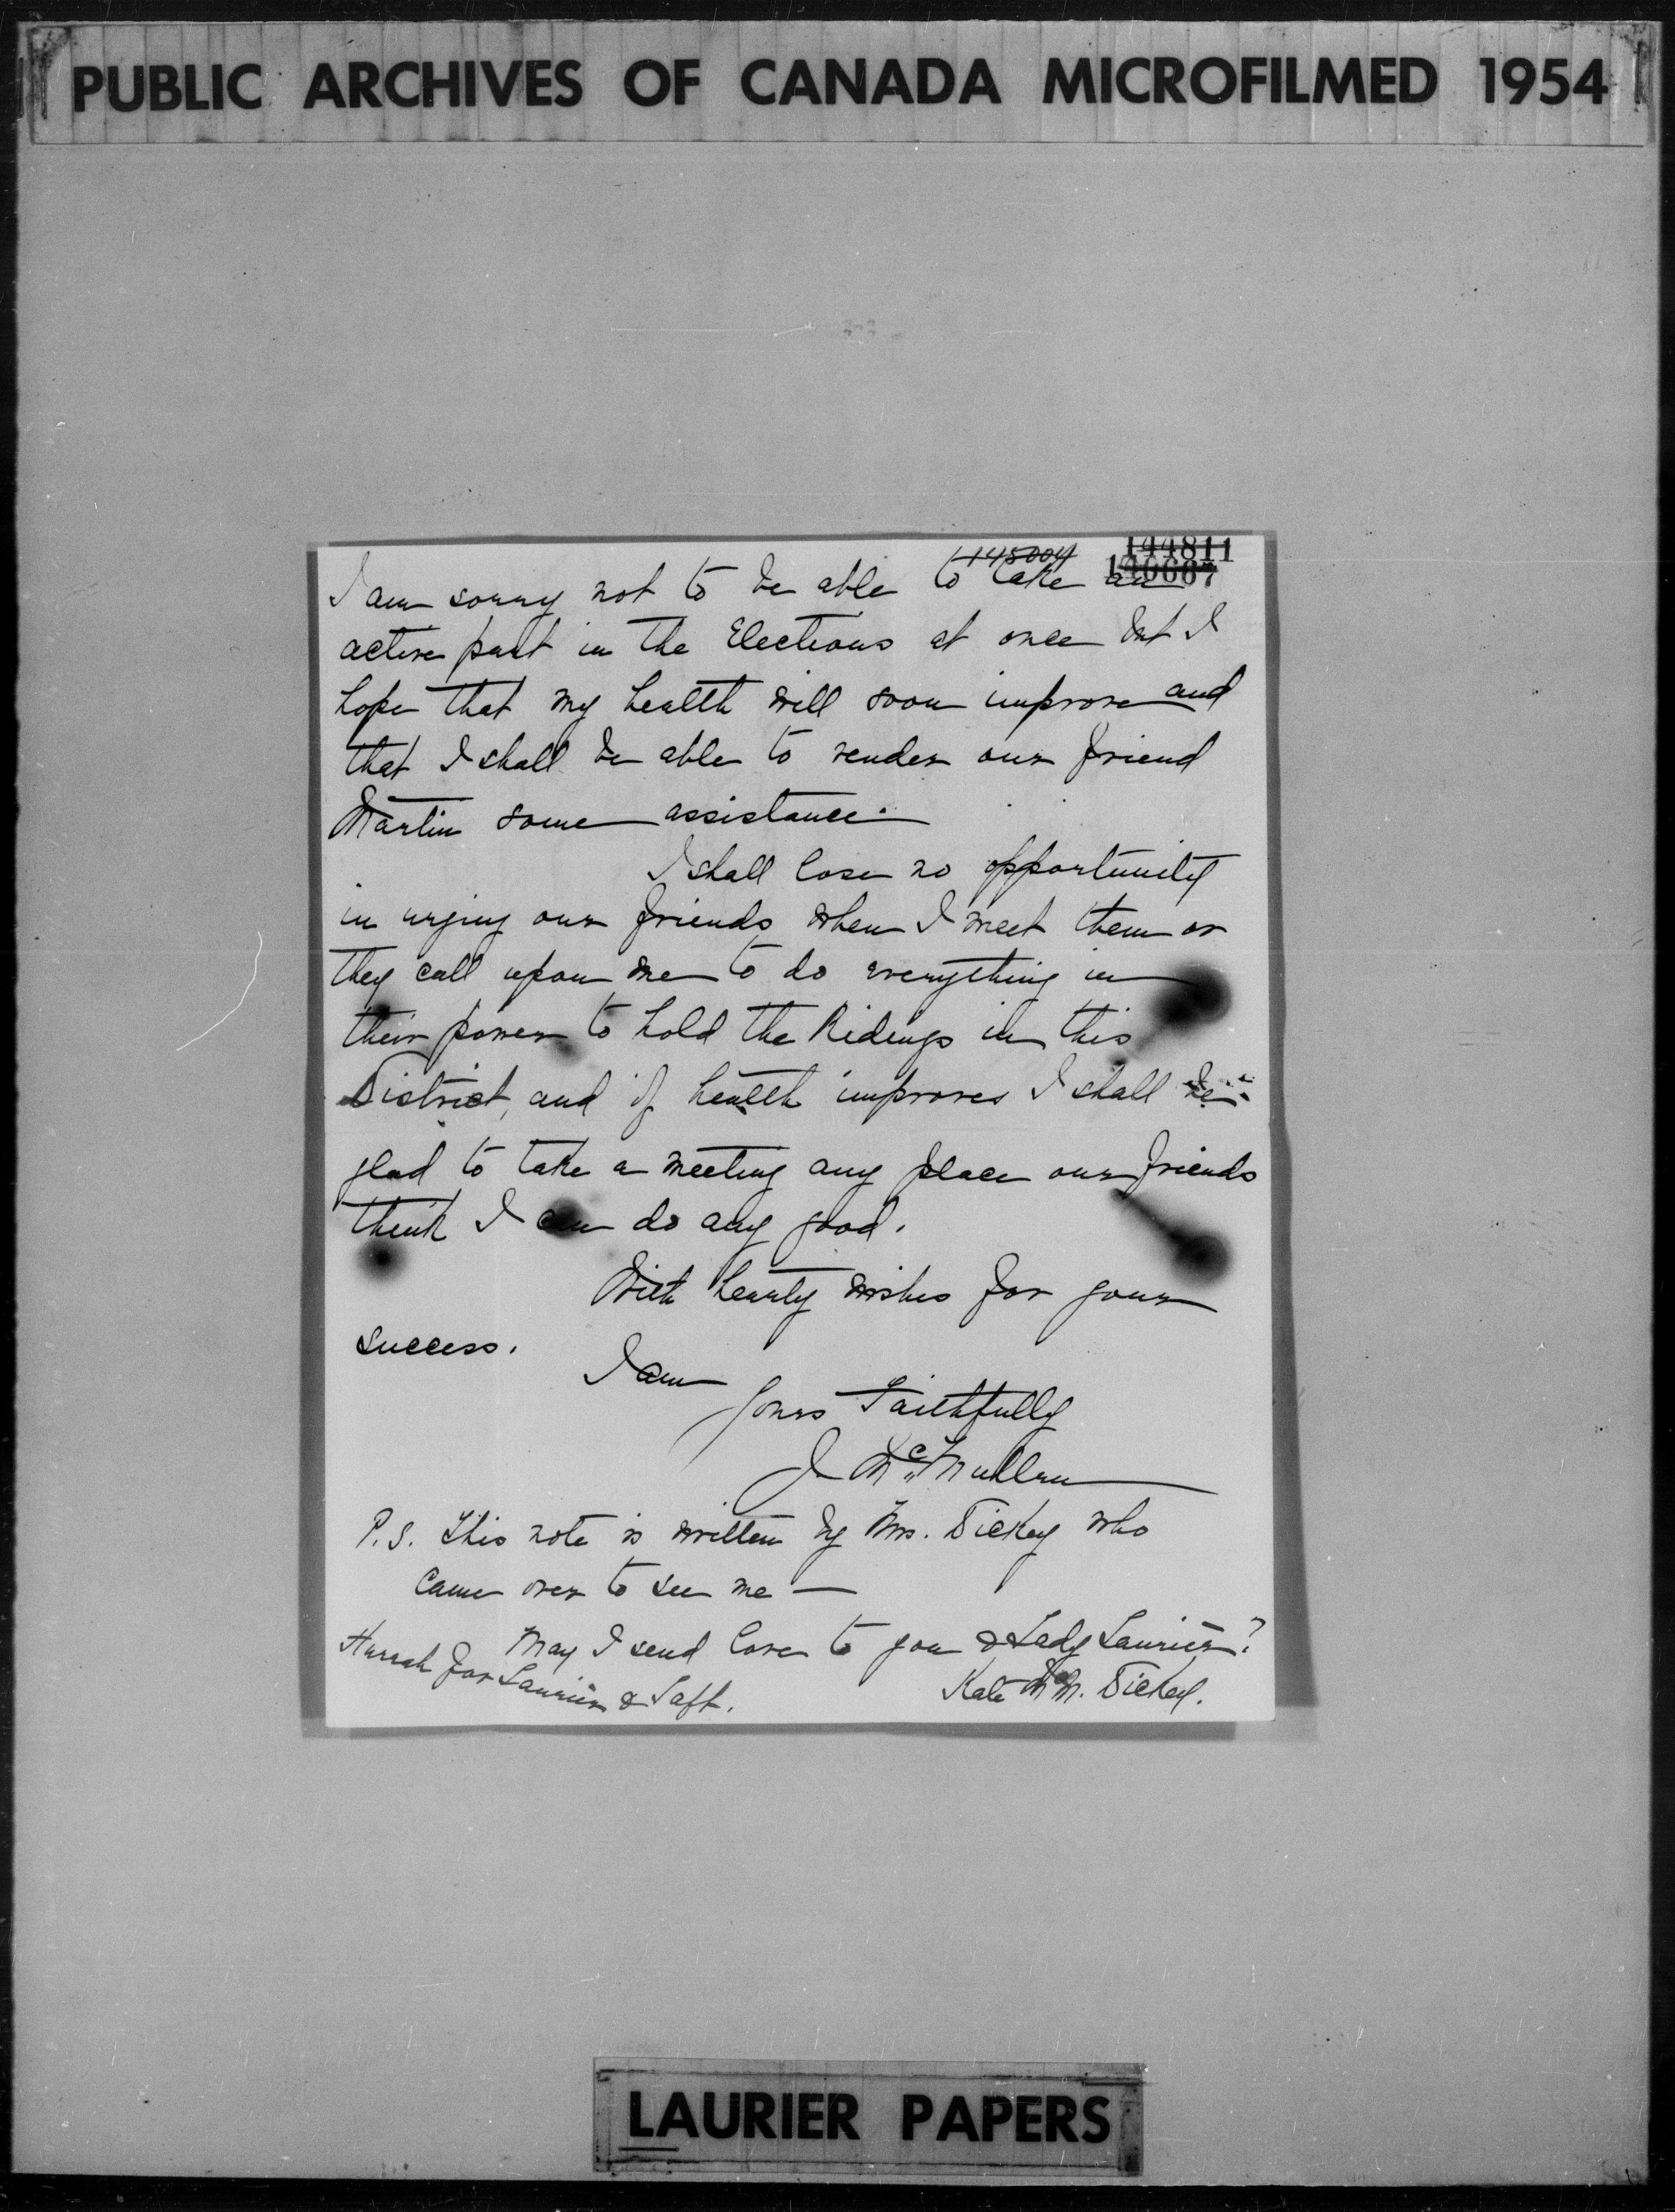 PUBLIC ARCHIVES OF CANADA MICROFILMED 1954
145004 144811
I am sorry not to be able to take an
active part in the Elections at once but I
hope that my health will soon improve and
that I shall be able to render our friend
Martin some assistance.
I shall lose no opportunity
in urging our friends when I meet them or
they call upon me to do everything in
their power to hold the Ridings in this
District, and if health improves I shall be
glad to take a meeting any place our friends
think I can do any good.
With hearty wishes for your
success.
I am
Yours Faithfully
J McMullen
P.S. This note is written by Mrs. Dickey who
came over to see me —
May I send love to you & Lady Laurier?
Hurrah for Laurier & Taft.
Kate McM. Dickey.
LAURIER PAPERS